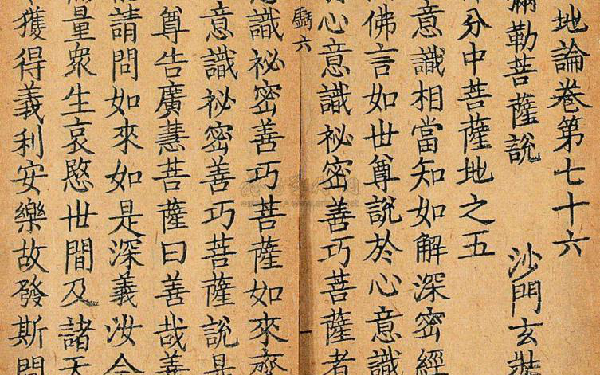 地論卷第七十六
彌勒菩薩說　沙門玄奘
分中菩薩地之五
意識相當知如解深密經
佛言如世尊說於心意識
心意識祕密善巧菩薩者
六
識祕密善巧菩薩如來齊
意識祕密善巧菩薩說是
尊告廣慧菩薩曰善哉善
請問如來如是深義汝今
量衆生哀愍世間及諸天
獲得義利安樂故發斯問